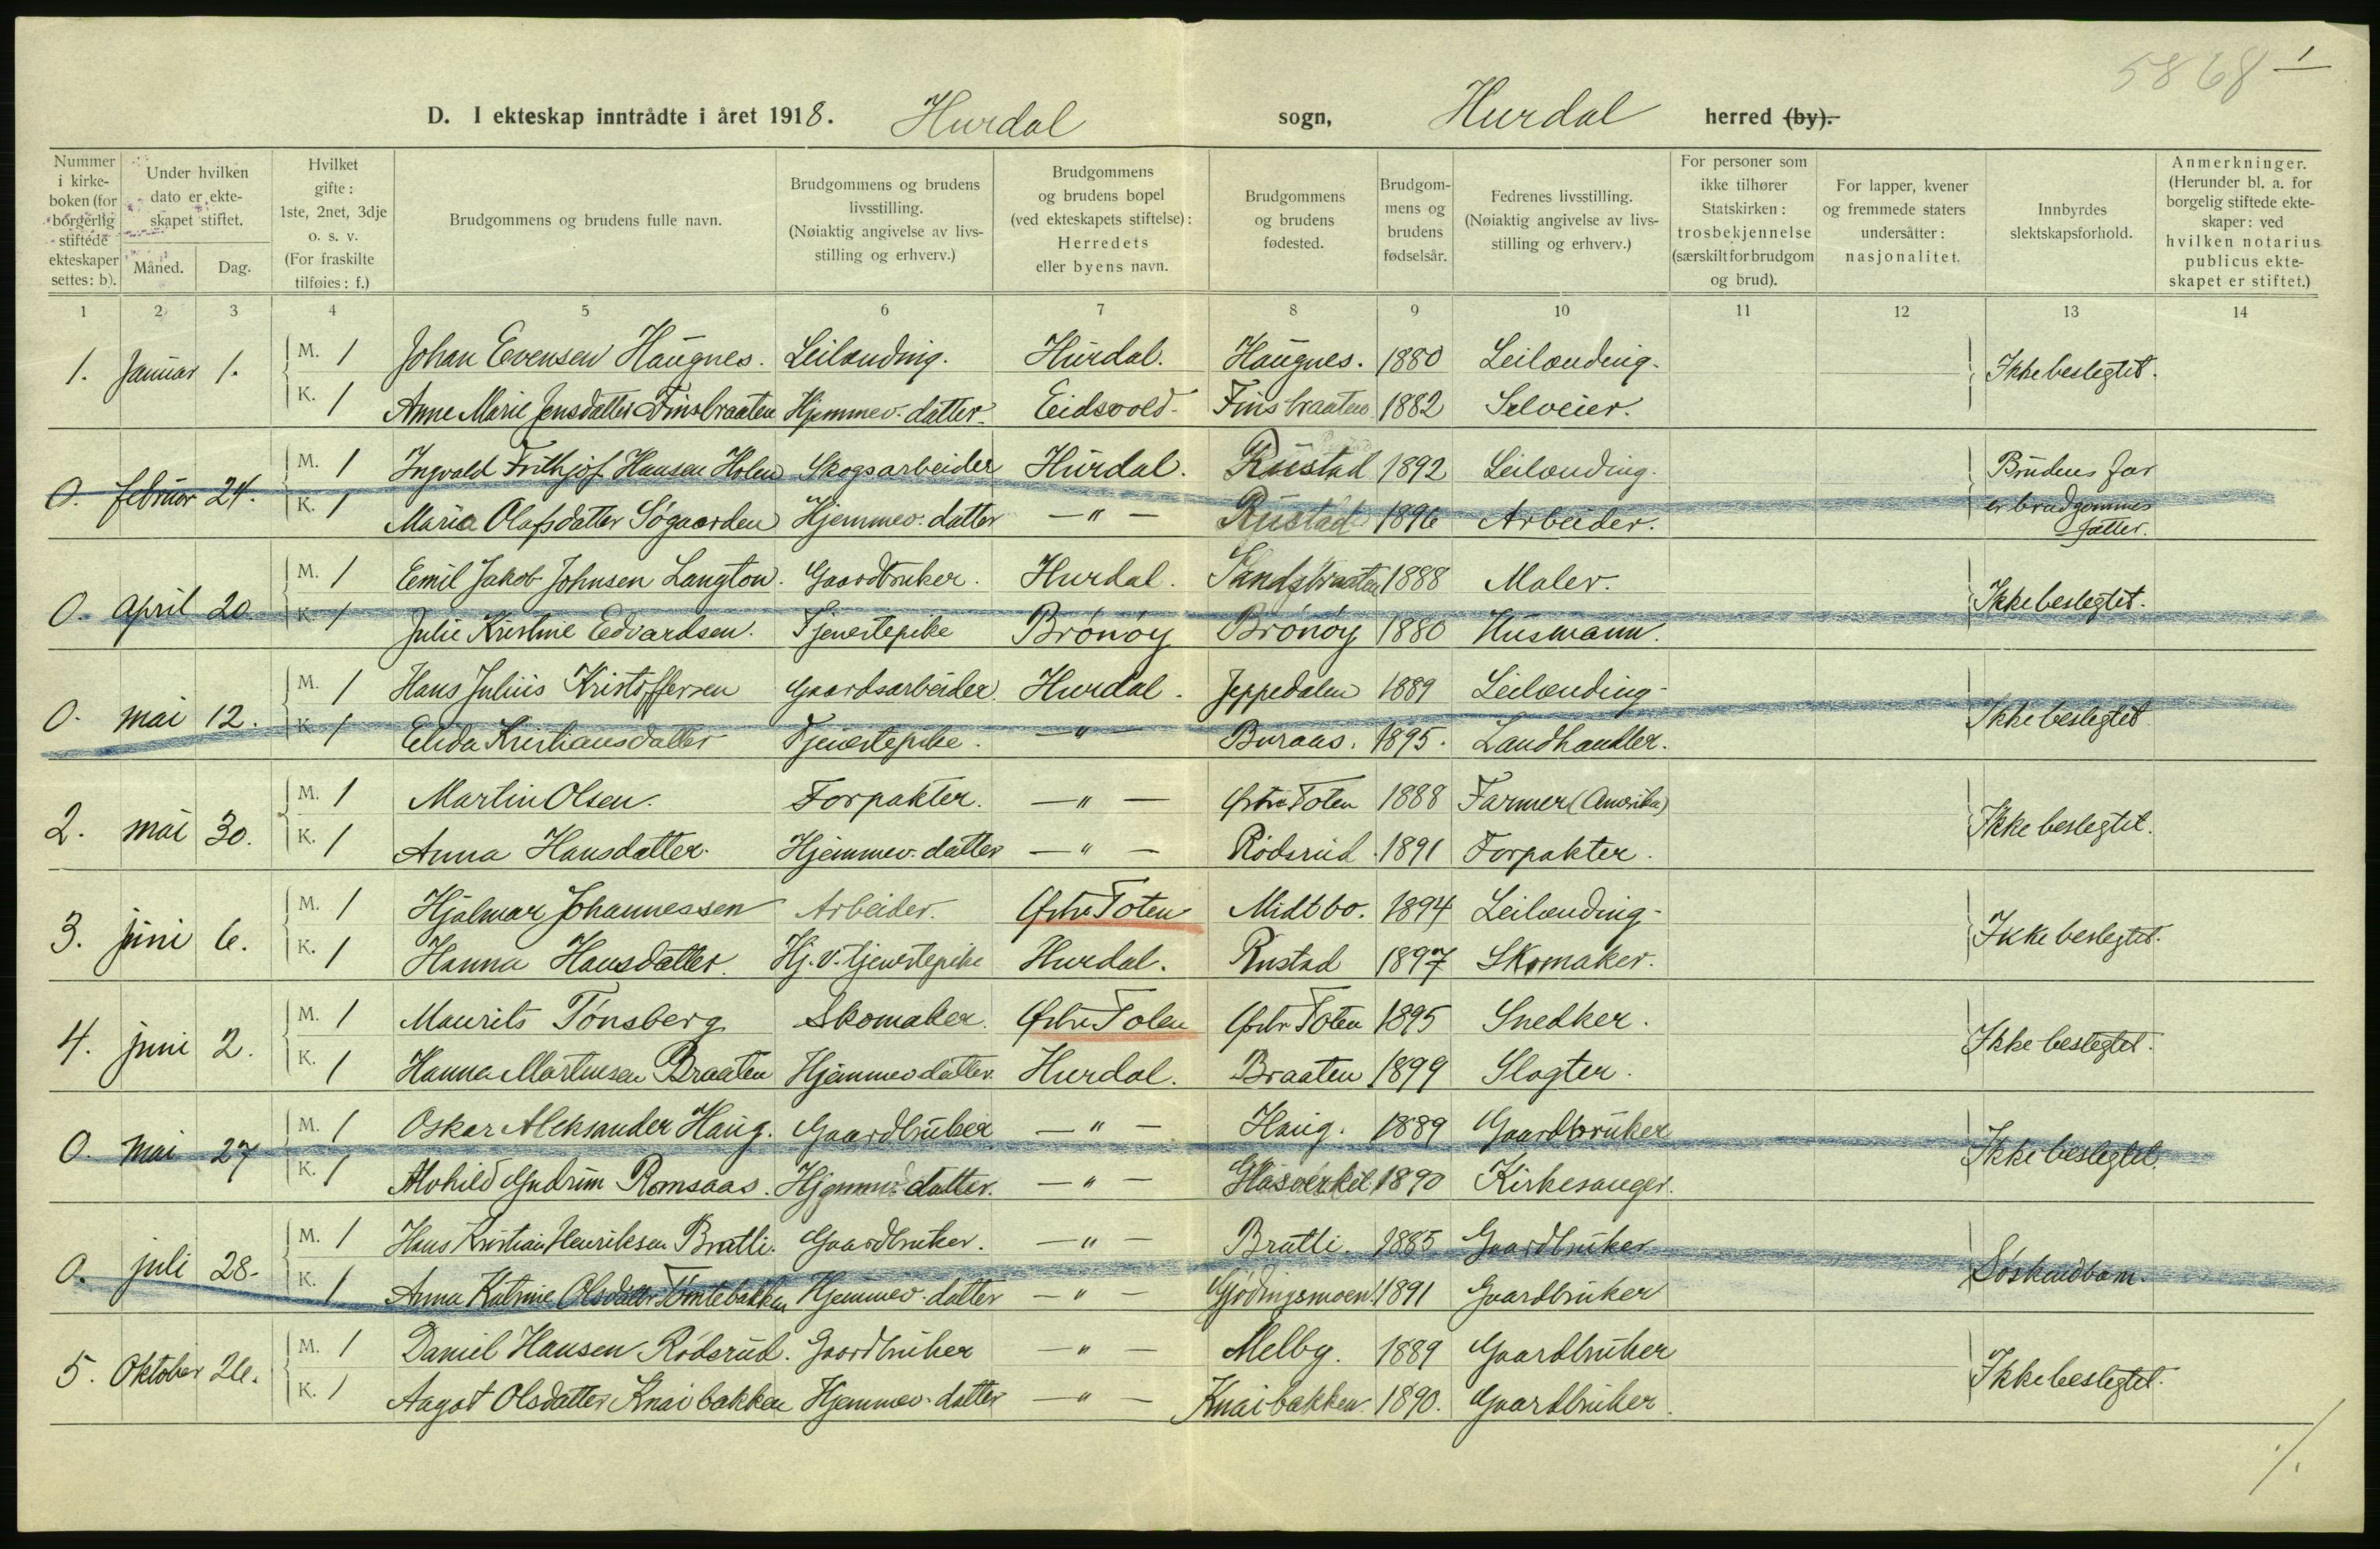 5868 1
D. I ekteskap inntrådte i året 1918. Hurdal sogn, Hurdal herred (by).
Nummer i kirkeboken (for borgerlig stiftede ekteskaper settes: b).
Under hvilken dato er ekteskapet stiftet.
Måned.
Dag.
Hvilket gifte: 1ste, 2net, 3dje o. s. v. (For fraskilte tilføies: f.)
Brudgommens og brudens fulle navn.
Brudgommens og brudens livsstilling. (Nøiaktig angivelse av livsstilling og erhverv.)
Brudgommens og brudens bopel (ved ekteskapets stiftelse): Herredets eller byens navn.
Brudgommens og brudens fødested.
Brudgommens og brudens fødselsår.
Fedrenes livsstilling. (Nøiaktig angivelse av livsstilling og erhverv.)
For personer som ikke tilhører Statskirken: trosbekjennelse (særskilt for brudgom og brud).
For lapper, kvener og fremmede staters undersåtter: nasjonalitet.
Innbyrdes slektskapsforhold.
Anmerkninger. (Herunder bl. a. for borgelig stiftede ekteskaper: ved hvilken notarius publicus ekteskapet er stiftet.)
1 2 3 4 5 6 7 8 9 10 11 12 13 14
1. Januar 1. M. 1 Johan Evensen Haugnes. Leilending. Hurdal. Haugnes. 1880 Leilending. Ikke beslegtet.
K. 1 Anne Marie Jensdatter Finsbraaten Hjemmev. datter. Eidsvold. Finsbraaten 1882 Selveier.
0. februar 24. M. 1 Ingvald Frithjof Hansen Holen Skogsarbeider Hurdal. Rustad 1892 Leilending. Brudens far
K. 1 Maria Olafsdatter Søgaarden Hjemmev. datter —"— Rustad 1896 Arbeider. er brudgommes
fætter.
0. april 20. M. 1 Emil Jakob Johnsen Langton. Gaardbruker. Hurdal. Sandsbraaten 1888 Maler. Ikke beslegtet.
K. 1 Julie Kristine Edvardsen. Tjenestepike Brønøy Brønøy 1880 Husmann.
0. mai 12. M. 1 Hans Julius Kristoffersen Gaardsarbeider Hurdal. Jeppedalen 1889 Leilending. Ikke beslegtet
K. 1 Elida Kristiansdatter Tjenestepike. —"— Buraas. 1895. Landhandler.
2. mai 30. M. 1 Martin Olsen. Forpakter. —"— Østre Toten 1888 Farmer (Amerika) Ikke beslegtet.
K. 1 Anna Hansdatter. Hjemmev. datter —"— Rødsrud 1891 Forpakter.
3. juni 6. M. 1 Hjalmar Johannessen Arbeider. Østre Toten Midtbo. 1894 Leilending. Ikke beslegtet.
K. 1 Hanna Hansdatter. Hj. v. tjenestepike Hurdal. Rustad 1897 Skomaker.
4. juni 2. M. 1 Maurits Tønsberg Skomaker. Østre Toten Østre Toten 1895 Snedker. Ikke beslegtet.
K. 1 Hanna Martinsen Braaten Hjemmev datter. Hurdal. Braaten 1899 Slagter.
0. mai 27 M. 1 Oskar Aleksander Haug. Gaardbruker —"— Haug. 1889 Gaardbruker Ikke beslegtet.
K. 1 Alvhild Gudrun Romsaas. Hjemmev datter. —"— Glasverket 1890 Kirkesanger.
0. juli 28. M. 1 Hans Kristian Henriksen Bratli. Gaardbruker. —"— Bratli. 1885 Gaardbruker Søskendbarn.
K. 1 Anna Katrine Olsdatter Tømtebakken Hjemmev. datter —"— Gjødingsmoen 1891 Gaardbruker
5. Oktober 26. M. 1 Daniel Hansen Rødsrud. Gaardbruker —"— Melby. 1889 Gaardbruker Ikke beslegtet.
K. 1 Aagot Olsdatter Knaibakken Hjemmev. datter —"— Knaibakken. 1890. Gaardbruker.